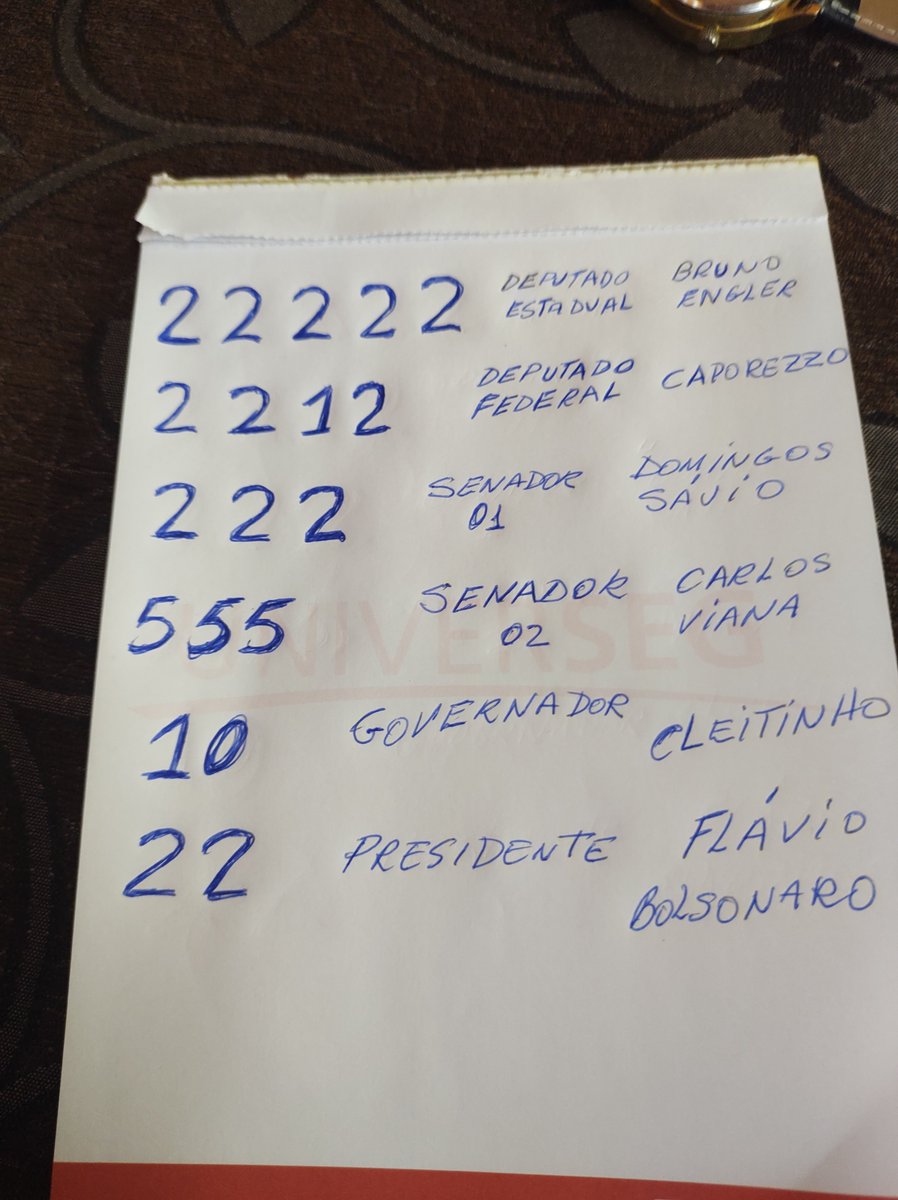 22222 DEPUTADO ESTADUAL BRUNO ENGLER
2212 DEPUTADO FEDERAL CAPOREZZO
222 SENADOR 01 DOMINGOS SÁVIO
555 SENADOR 02 CARLOS VIANA
UNIVERSEG
10 GOVERNADOR CLEITINHO
22 PRESIDENTE FLÁVIO BOLSONARO